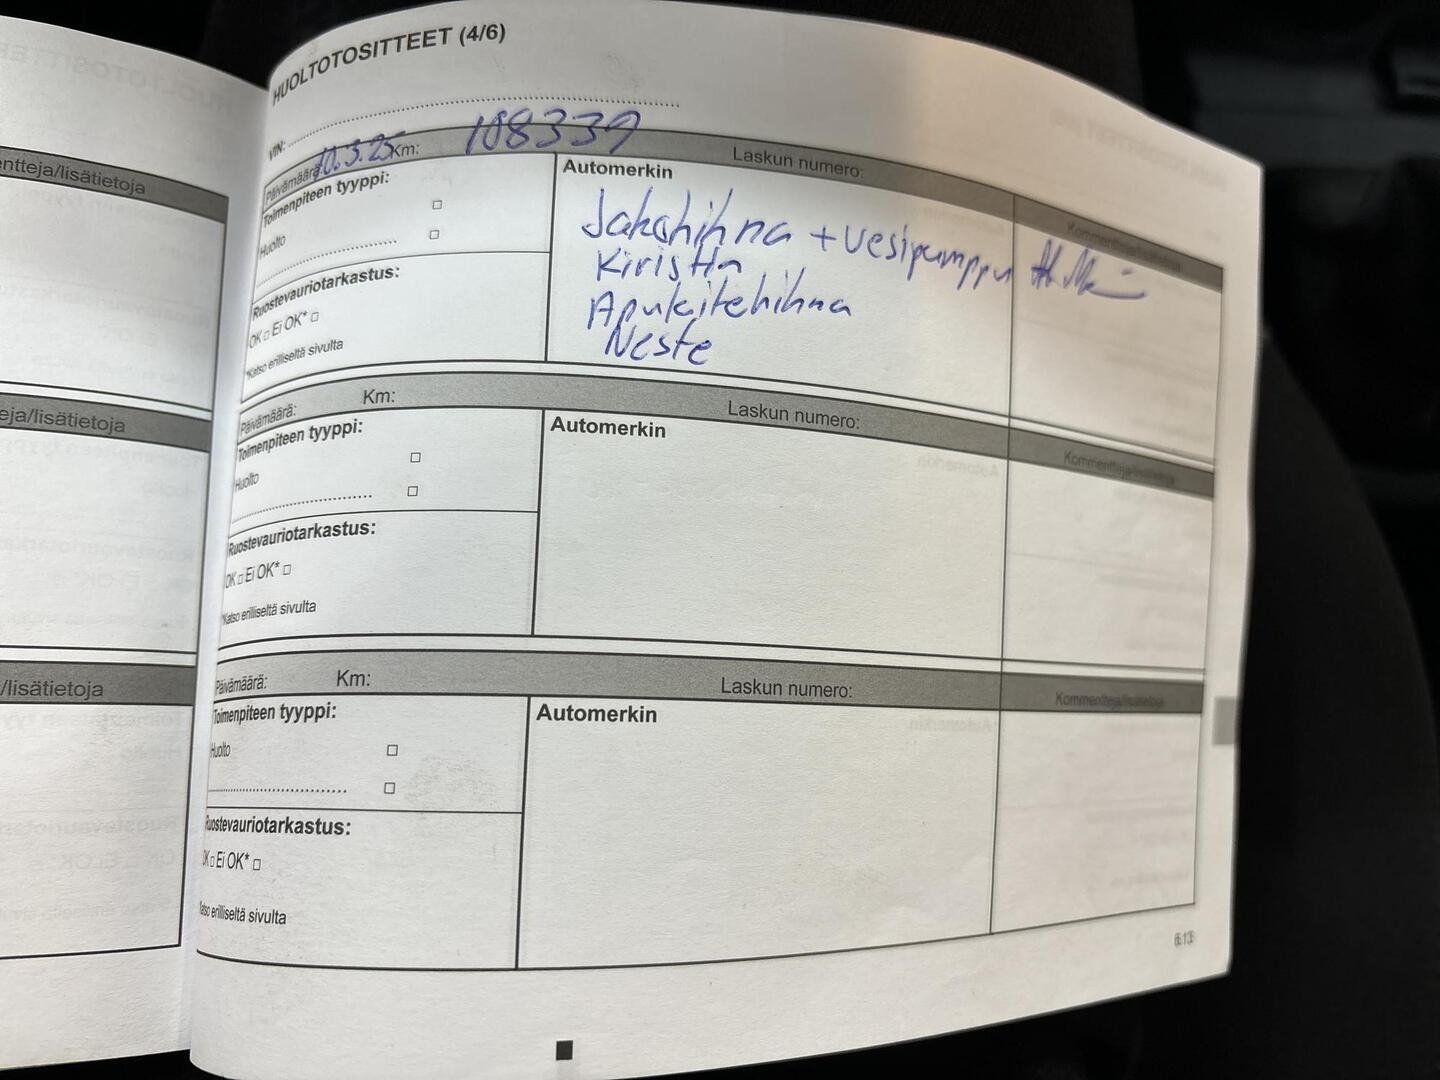 HUOLTOTOSITTEET (4/6)
VIN:
Päivämäärä: 10.3.25 Km: 108339 Laskun numero:
Toimenpiteen tyyppi:
Huolto
Ruostevauriotarkastus:
OK □ Ei OK* □
*Katso erilliseltä sivulta
Automerkin
Jakohihna + vesipumppu
Kiristin
Apulaitehihna
Neste
Kommentteja/lisätietoja
Päivämäärä: Km: Laskun numero:
Toimenpiteen tyyppi:
Huolto
Ruostevauriotarkastus:
OK □ Ei OK* □
*Katso erilliseltä sivulta
Automerkin
Kommentteja/lisätietoja
Päivämäärä: Km: Laskun numero:
Toimenpiteen tyyppi:
Huolto
Ruostevauriotarkastus:
OK □ Ei OK* □
Katso erilliseltä sivulta
Automerkin
Kommentteja/lisätietoja
6.13
entteja/lisätietoja
eja/lisätietoja
/lisätietoja